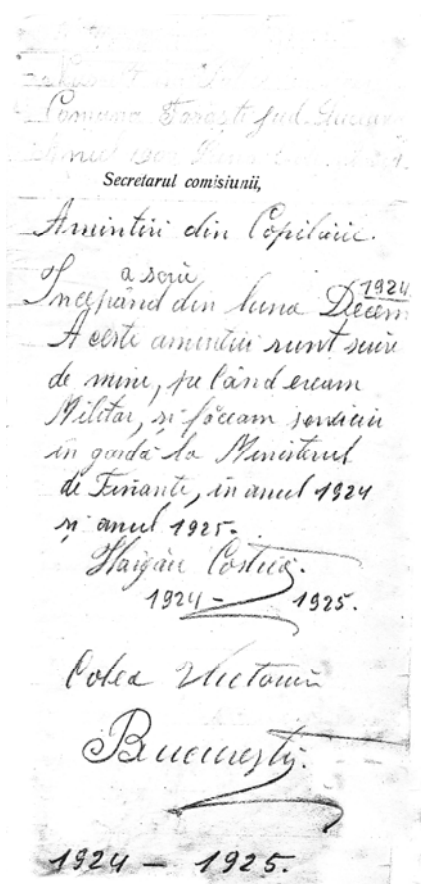 Comuna jud.
Secretarul comisiunii,
Amintiri din Copilărie.
a scrie
Începând din luna Decem 1924
Aceste amintiri sunt scrie
de mine, pe când eream
Militar, și făceam serviciu
în gardă la Ministerul
de Finante, in anul 1924
și anul 1925.
Costică.
1924 – 1925.
Colea Victoriei
București.
1924 – 1925.